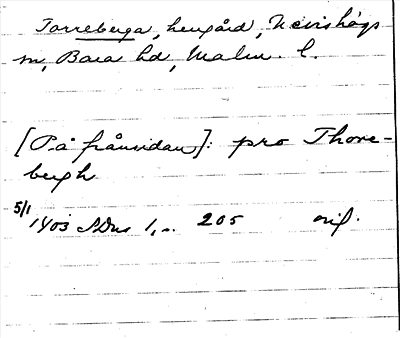 Torreberga, herrgård, Nevishögs
sn, Bara hd, Malm. l.
[På frånsidan]: pro Thore-
bergh
5/1
1403 SDns 1, s. 205 orig.